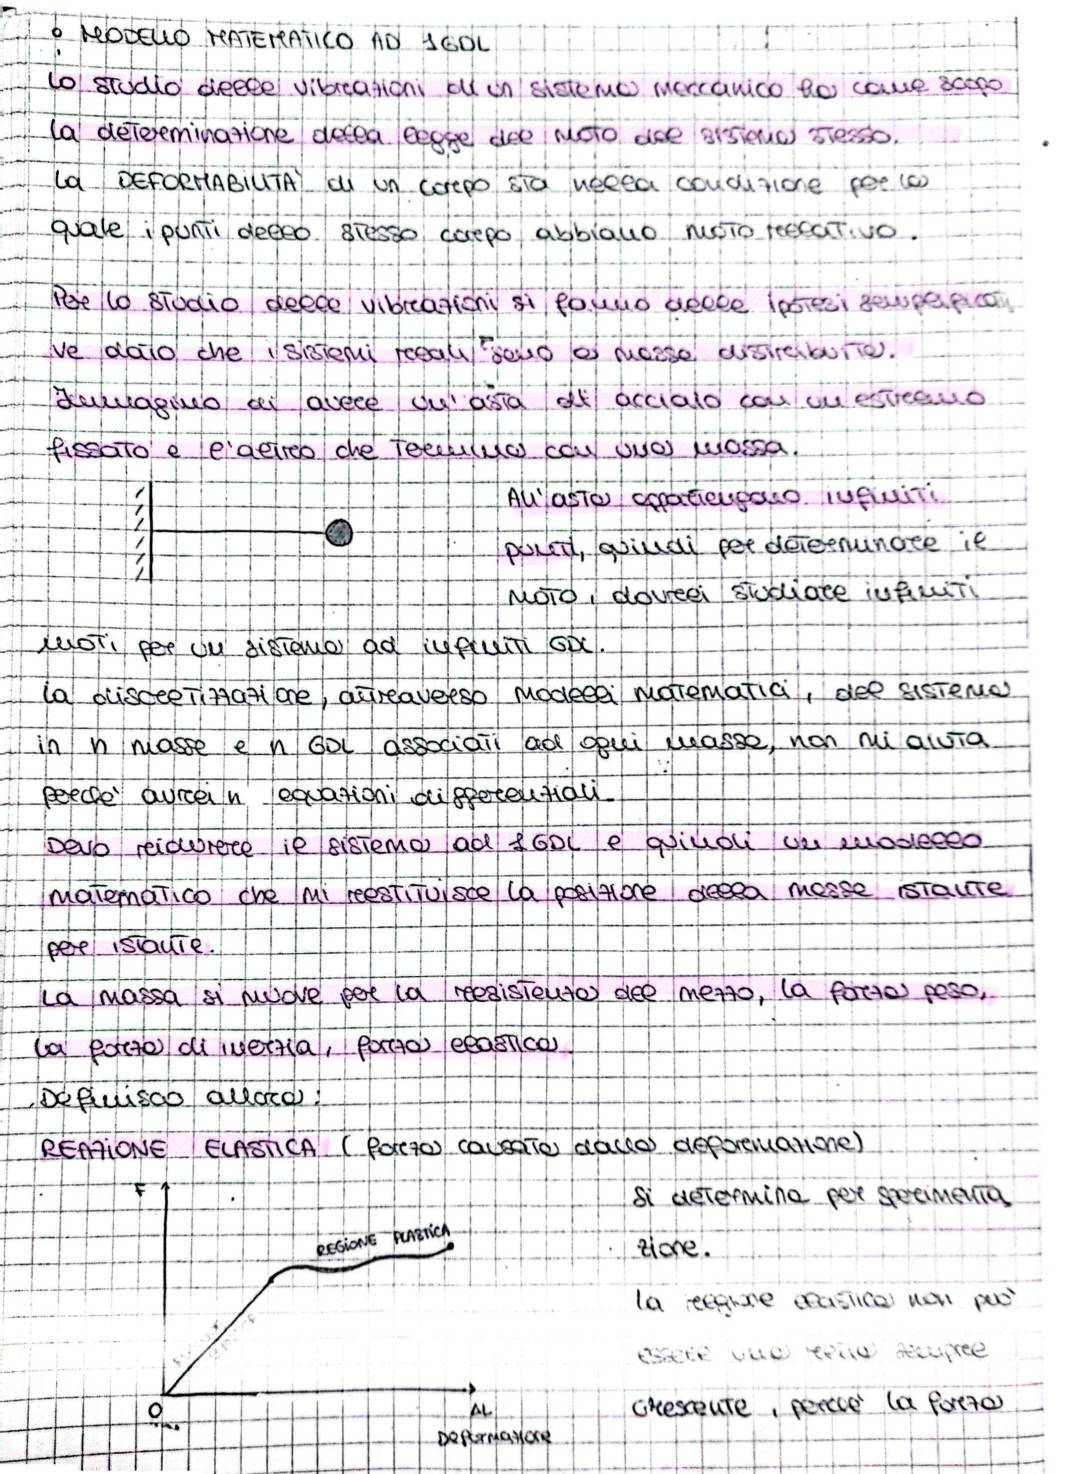 MODELLO MATEMATICO AD 1GDL
Lo studio delle vibrazioni di un sistema meccanico ha come scopo
la determinazione della legge del moto del sistema stesso.
La DEFORMABILITA' di un corpo sta nella condizione per la
quale i punti dello stesso corpo abbiano moto relativo.
Per lo studio delle vibrazioni si fanno delle ipotesi semplificati
ve dato che i sistemi reali sono a massa distribuita.
Immagino di avere un'asta di acciaio con un estremo
fissato e l'altro che termina con una massa.
All'asta appartengono infiniti
punti, quindi per determinare il
moto, dovrei studiare infiniti
moti per un sistema ad infiniti GDL.
La discretizzazione, attraverso modelli matematici, del sistema
in n masse e n GDL associati ad ogni massa, non mi aiuta
perche' avrei n equazioni differenziali.
Devo ridurre il sistema ad 1GDL e quindi un modello
matematico che mi restituisce la posizione della massa istante
per istante.
La massa si muove per la resistenza del mezzo, la forza peso,
la forza di inerzia, forza elastica.
Definisco allora:
REAZIONE ELASTICA (forza causata dalla deformazione)
F
REGIONE PLASTICA
O
ΔL
Deformazione
Si determina per sperimenta
zione.
La regione elastica non può
essere una retta sempre
crescente, perche' la forza